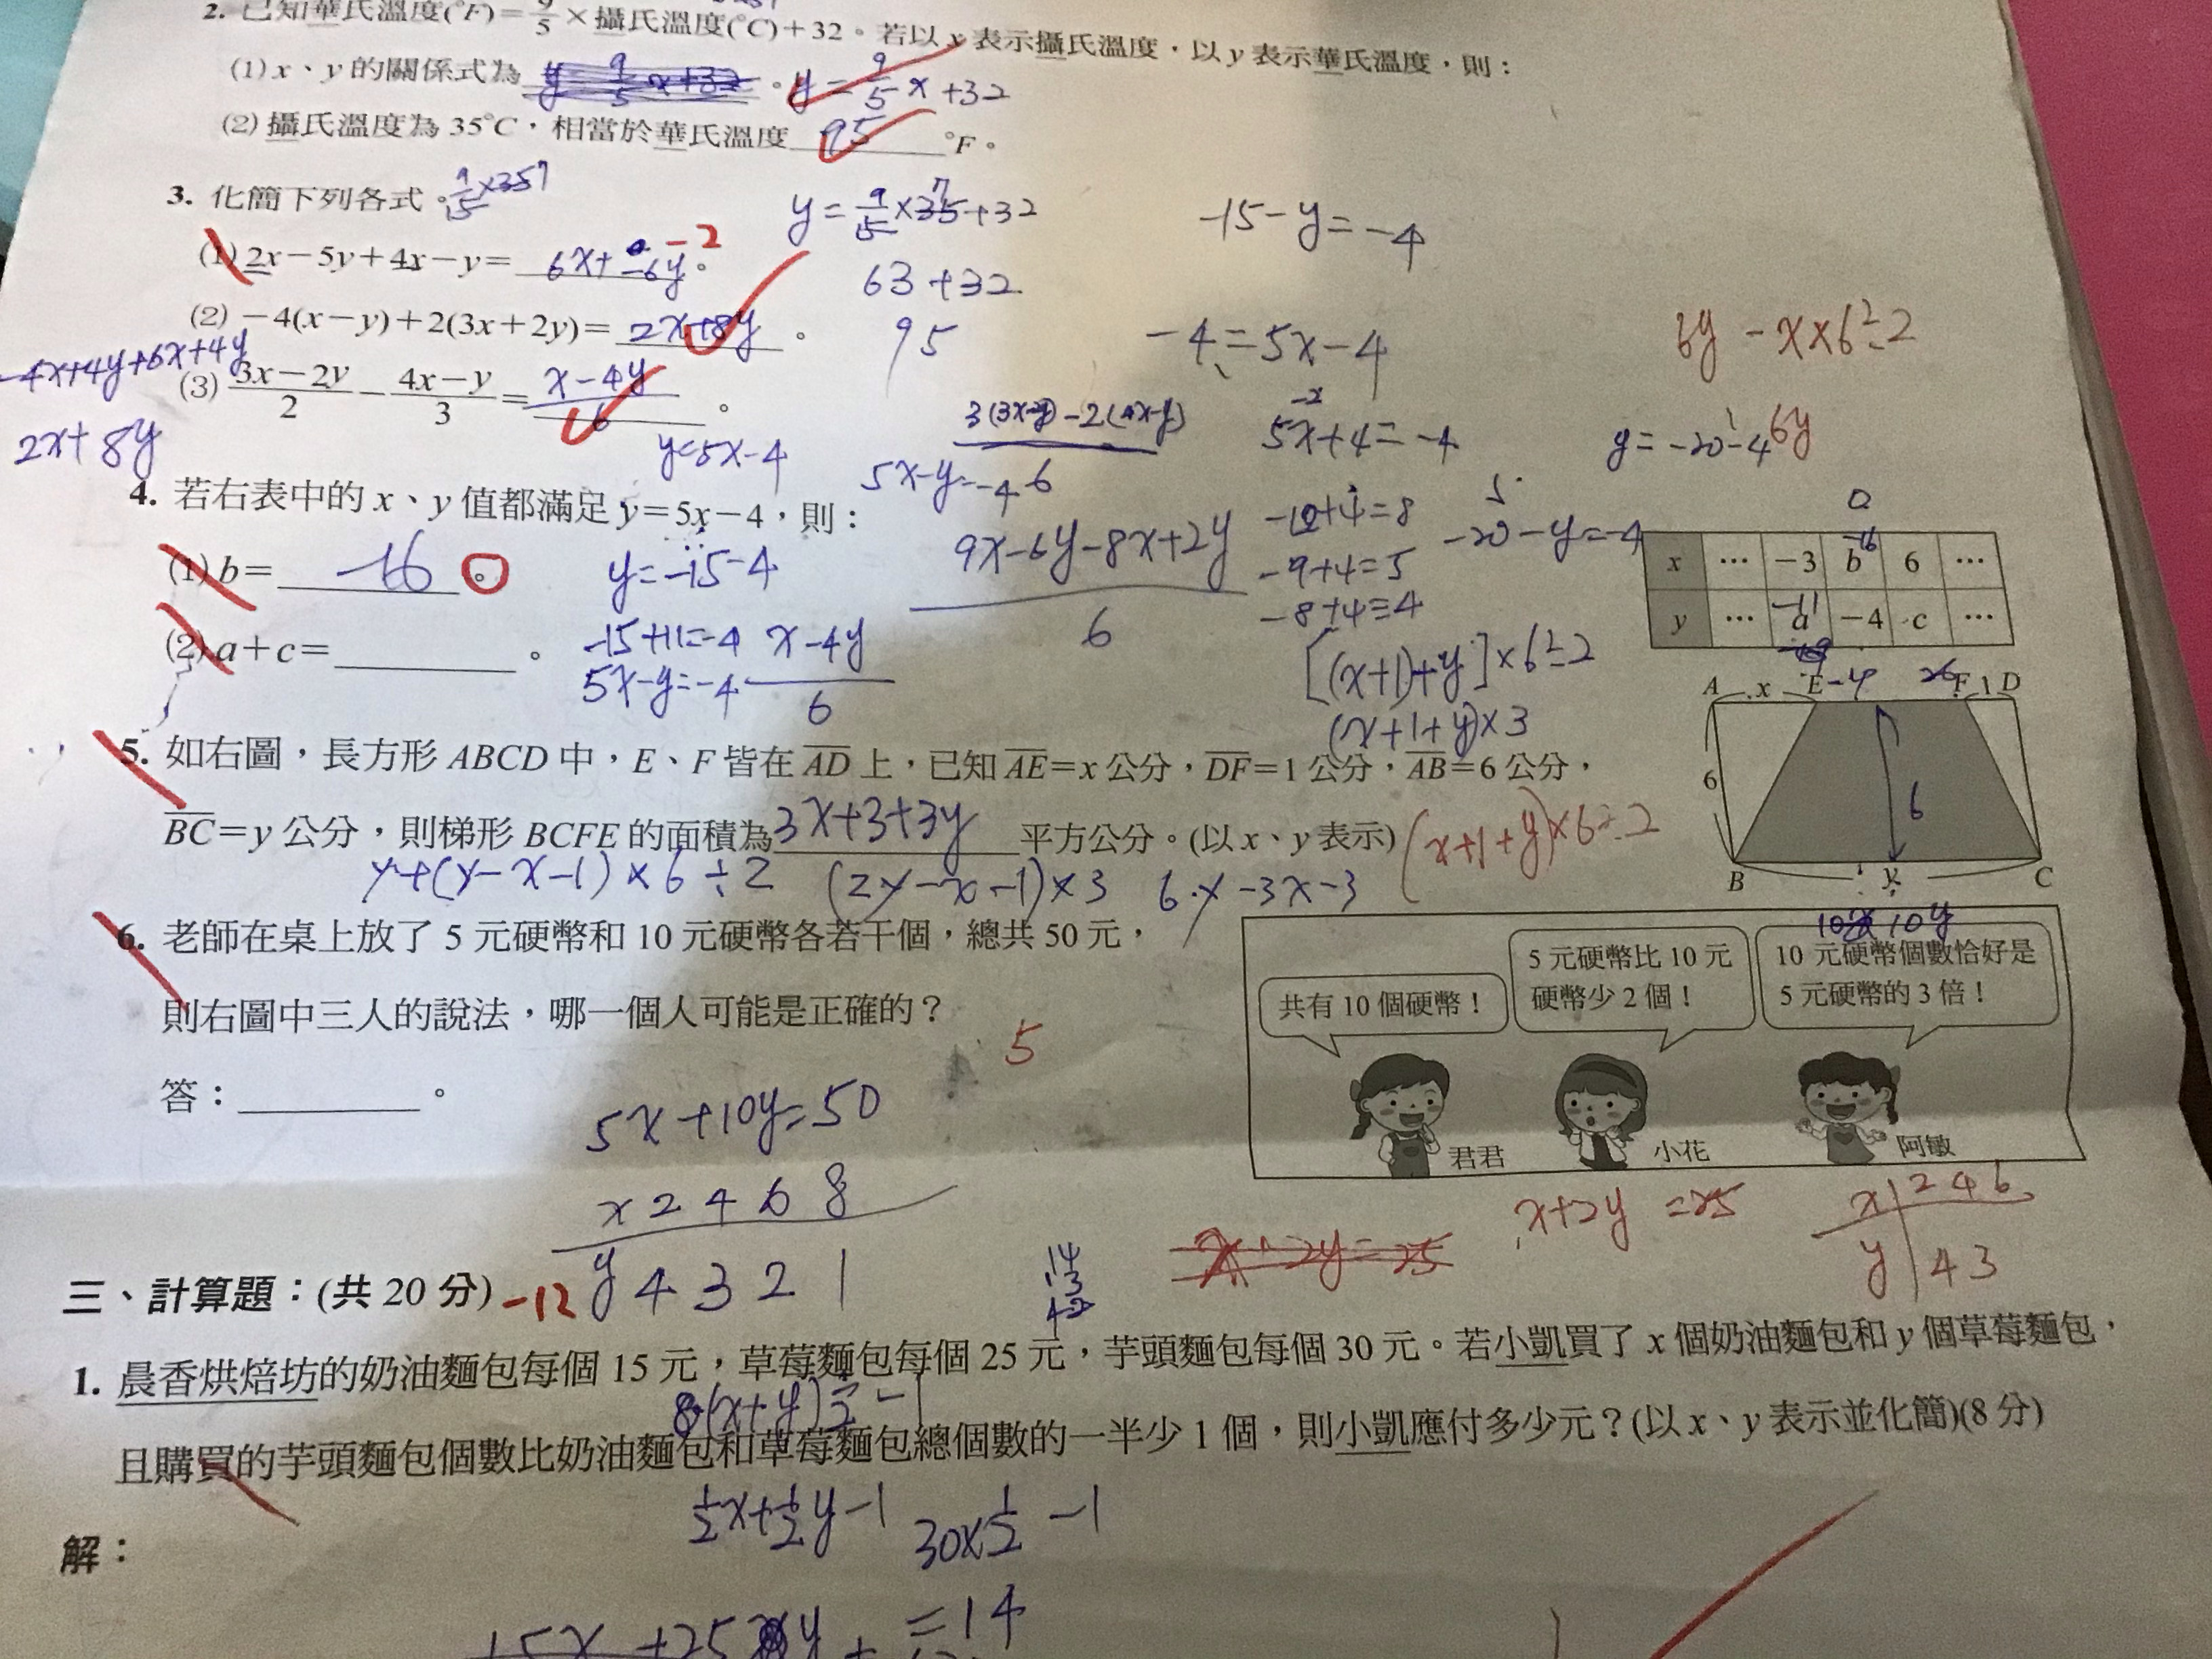 2. 已知華氏溫度(°F)=9/5×攝氏溫度(°C)+32。若以 x 表示攝氏溫度,以 y 表示華氏溫度,則:
(1) x、y 的關係式為 y=9/5x+32 。y=9/5x+32
(2) 攝氏溫度為 35°C,相當於華氏溫度 95 °F。
3. 化簡下列各式。9/5×35 7
y=9/5×35 7+32
-15-y=-4
(1) 2x-5y+4x-y= 6x+-6y 。 -2
63+32
(2) -4(x-y)+2(3x+2y)= 2x+8y 。
95
-4=5x-4
6y-x×6÷2
-4x+4y+6x+4y
(3) 3x-2y/2 - 4x-y/3 = x-4y/6 。
2x+8y
y=5x-4
5x-y=-4
6
5x+4=-4
y=-20-4
6y
4. 若右表中的 x、y 值都滿足 y=5x-4,則:
(1) b= -16 。
y=-15-4
9x-6y-8x+2y
6
-12+4=8
-9+4=5
-8+4=4
-20-y=-4
x … -3 b 6 …
-16
y … a -4 c …
-11
(2) a+c= 。
-15+11=-4
5x-y=-4
x-4y
6
[(x+1)+y]×6÷2
(x+1+y)×3
A x E F 1 D
5. 如右圖,長方形 ABCD 中,E、F 皆在 AD 上,已知 AE=x 公分,DF=1 公分,AB=6 公分,
6
6
BC=y 公分,則梯形 BCFE 的面積為 3x+3+3y 平方公分。(以 x、y 表示)
(x+1+y)×6÷2
y+(y-x-1)×6÷2 (2y-x-1)×3 6y-3x-3
B y C
10y
6. 老師在桌上放了 5 元硬幣和 10 元硬幣各若干個,總共 50 元,
則右圖中三人的說法,哪一個人可能是正確的?
答: 。
5
共有 10 個硬幣!
5 元硬幣比 10 元
硬幣少 2 個!
10 元硬幣個數恰好是
5 元硬幣的 3 倍!
君君
小花
阿敏
5x+10y=50
x 2 4 6 8
y 4 3 2 1
x+2y=25
x+2y =25
x 2 4 6
y 4 3
三、計算題:(共 20 分) -12
14
13
1. 晨香烘焙坊的奶油麵包每個 15 元,草莓麵包每個 25 元,芋頭麵包每個 30 元。若小凱買了 x 個奶油麵包和 y 個草莓麵包,
(x+y)
且購買的芋頭麵包個數比奶油麵包和草莓麵包總個數的一半少 1 個,則小凱應付多少元?(以 x、y 表示並化簡)(8 分)
1/2x+1/2y-1
30×1/2 -1
解:
=14
15x+25y+